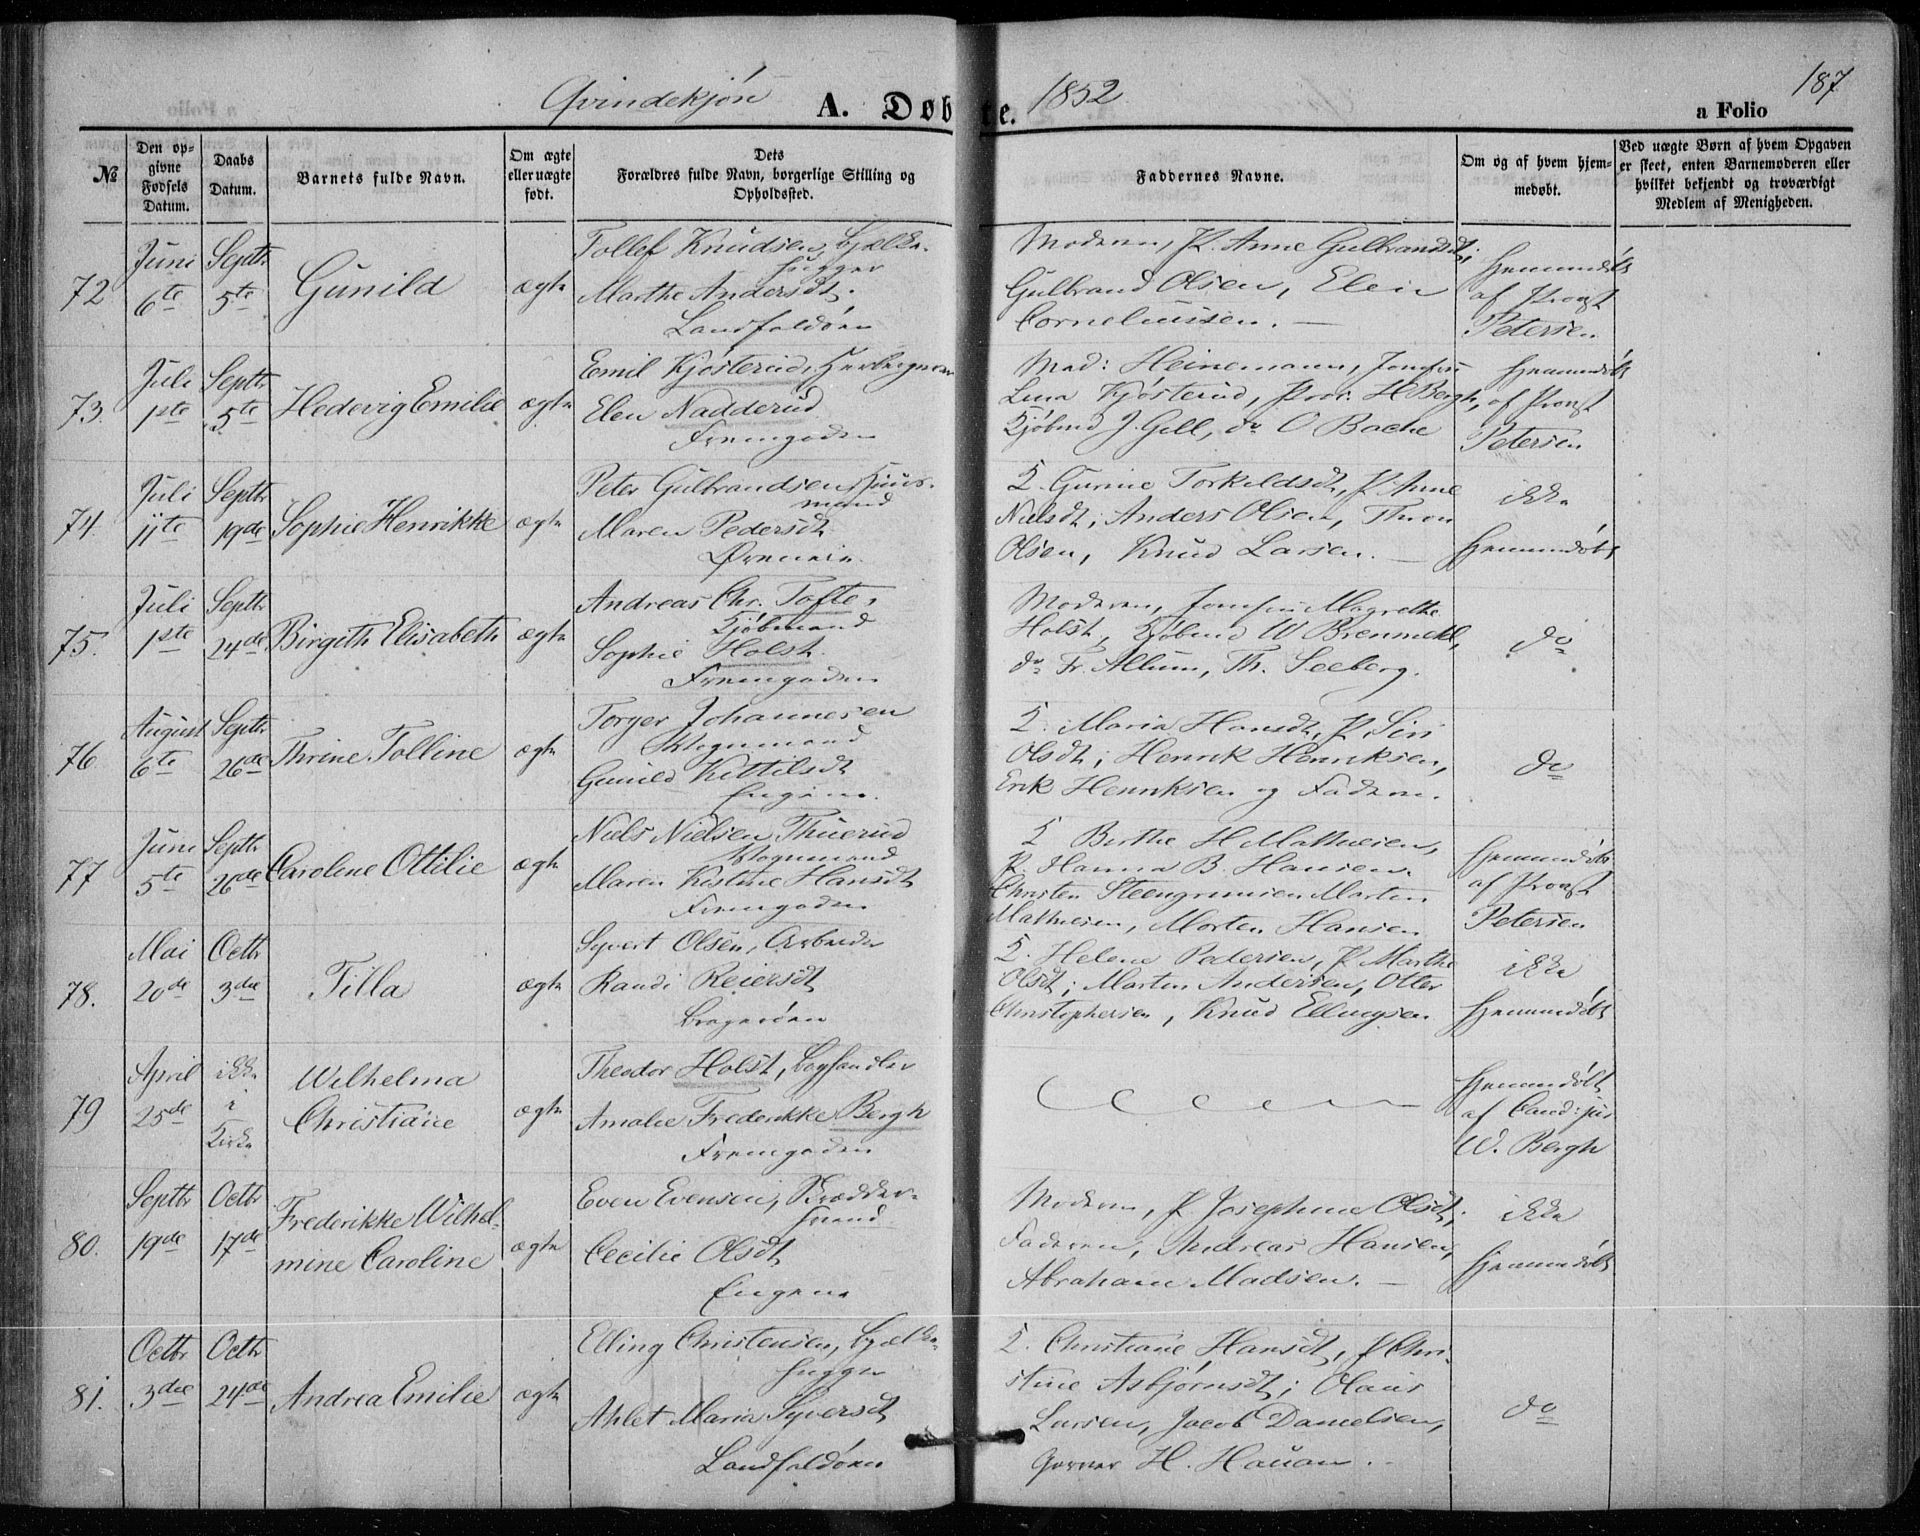 Qvindekjøn A. Døbte. 1852 a Folio 187
№
Den opgivne Fødsels Datum.
Daabs Datum.
Barnets fulde Navn.
Om ægte eller uægte født.
Dets Forældres fulde Navn, borgerlige Stilling og Opholdssted.
Faddernes Navne.
Om og af hvem hjemmedøbt.
Ved uægte Børn af hvem Opgaven er skeet, enten Barnemoderen eller hvilket bekjendt og troværdigt Medlem af Menigheden.
72
Juni 6te
Septbr 5te
Gunild
ægte
Tollef Knudsen, bjelke-
hugger
Marthe Andersdt.
Landfaldøen
Moderen, P. Anne Gulbrandsdt;
Gulbrand Olsen, Elen
Corneliussen. —
Hjemmedøbt
af Provst
Petersen
73.
Juli 1ste
Septbr 5te
Hedevig Emilie
ægte
Emil Kjøsterud,
Elen Nadderud
Fremgaden
Mad: Heinemann, Jomfru
Lina Kjøsterud, H Bergh,
Kjøbmd J. Gell, do O Bache
Hjemmedøbt
af Provst
Petersen
74.
Juli 11te
Septbr 19de
Sophie Henrikke
ægte
Peter Gulbrandsen Huus-
mand
Maren Pedersdt
Øreneie.
K. Gurine Torkildsdt, P. Anne
Nielsdt; Anders Olsen, Thron
Olsen, Knud Larsen. —
ikke
Hjemmedøbt
75.
Juli 1ste
Septbr 24de
Birgith Elisabeth
ægte
Andreas Chr. Tofte,
Kjøbmand
Sophie Holst.
Fremgaden
Moderen, Jomfru Magrethe
Holst, Kjøbmd W
do Fr. Allum, Th. Seeberg.
do
76
August 6te
Septbr 26de
Thrine Tolline
ægte
Torger Johannesen
Vognmand
Gunild Kittilsdt
Engene.
K. Maria Hansdt, P. Siri
Olsdt; Henrik Henriksen,
Erik Henriksen og Faderen.
do
77
Juni 5te
Septbr 26de
Caroline Ottilie
ægte
Niels Nielsen Thuerud
Vognmand
Maren Kistine Hansdt
Fremgaden
K Berthe H Mathiesen,
P. Hanna B. Hansen.
Christen Steengrimsen Morten
Mathiesen, Morten Hansen
Hjemmedøbt
af Provst
Petersen
78.
Mai 20de
Octbr 3die
Tilla
ægte
Syvert Olsen, Arbeider
Randi Reiersdt
Bragerøen
K. Helene Pedersen, P Marthe
Olsdt; Morten Andersen, Otter
Christophersen, Knud Ellingsen.
ikke
Hjemmedøbt
79
April 25de
ikke
i
Kirke
Wilhelma
Christiane
ægte
Theodor Holst, boghandler
Amalie Frederikke Bergh
Fremgaden
Hjemmedøbt
af Cand: jur
W. Bergh
80.
Septbr 19de
Octbr 17de
Frederikke Wilhel-
mine Caroline
ægte
Even Evensen,
Cecilie Olsdt
Engene
Moderen, P. Josephine Olsdt;
Faderen, Andreas Hansen,
Abraham Madsen. —
ikke
Hjemmedøbt
81.
Octbr 3die
Octbr 24de
Andrea Emilie
ægte
Elling Christensen, bjelke-
hugger
Ahlet Maria Syversdt
Landfaldøen
K. Christiane Hansdt, P Chri-
stine Asbjørnsdt; Olaus
Larsen, Jacob Danielsen,
Garver H. Hauan. -
do